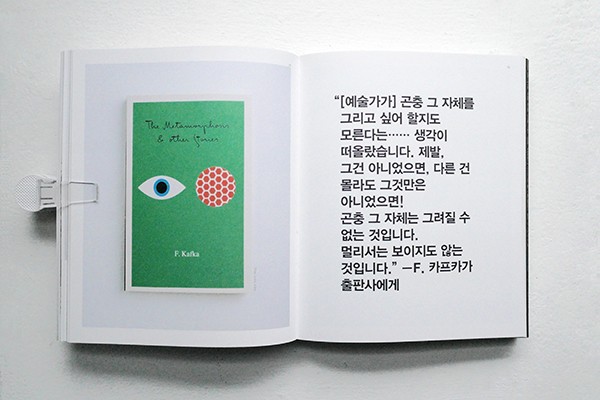 The Metamorphosis
& other Stories
F. Kafka
“[예술가가] 곤충 그 자체를
그리고 싶어 할지도
모른다는…… 생각이
떠올랐습니다. 제발,
그건 아니었으면, 다른 건
몰라도 그것만은
아니었으면!
곤충 그 자체는 그려질 수
없는 것입니다.
멀리서는 보이지도 않는
것입니다.” —F. 카프카가
출판사에게